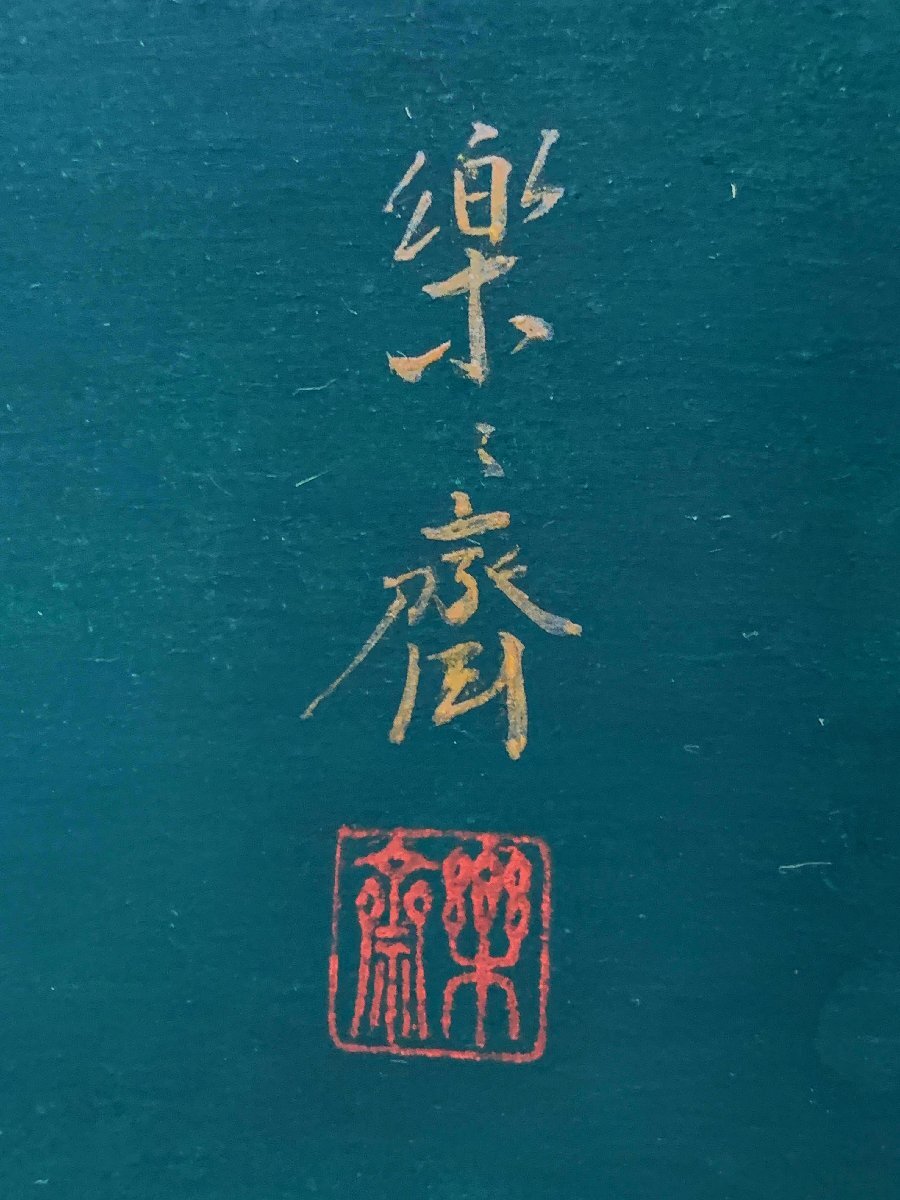 樂〻齋
樂齋